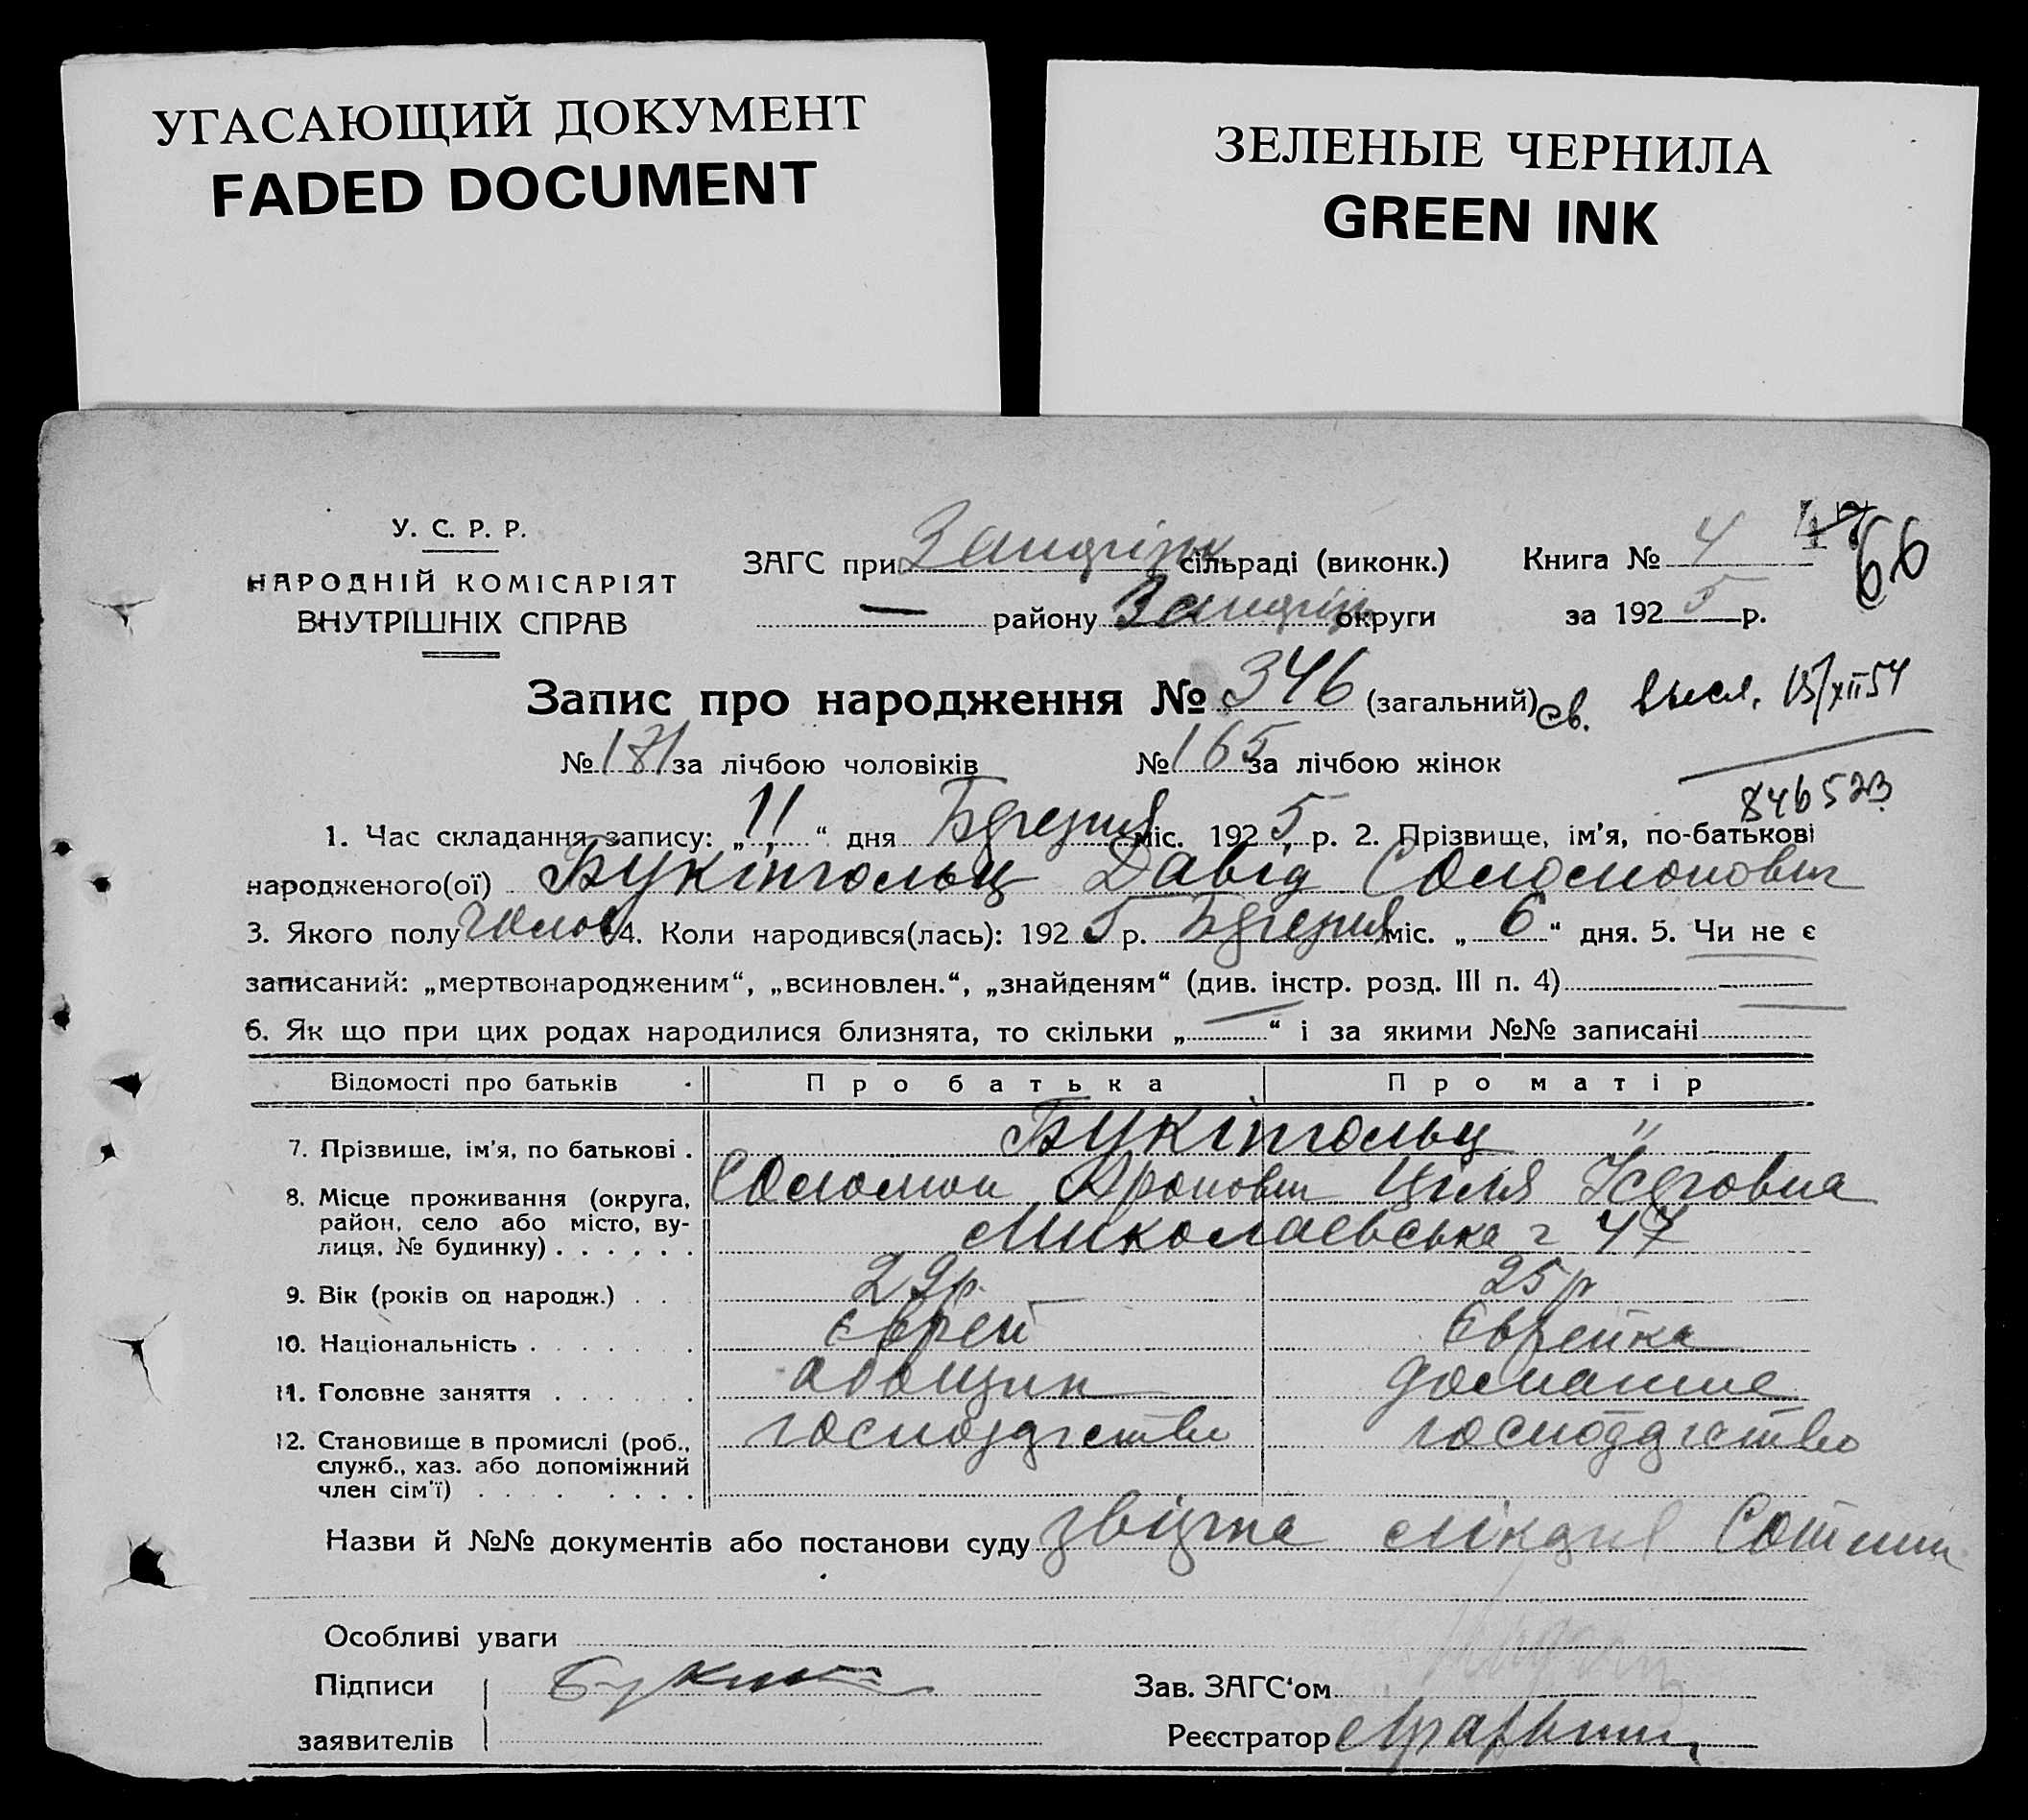 УГАСАЮЩИЙ ДОКУМЕНТ
FADED DOCUMENT
ЗЕЛЕНЫЕ ЧЕРНИЛА
GREEN INK
У. С. Р. Р.
НАРОДНІЙ КОМІСАРІЯТ
ВНУТРІШНІХ СПРАВ
ЗАГС при сільраді (виконк.)
— району округи
Книга № 4
за 1925 р.
66
Запис про народження № 346 (загальний)
св. высл. 15/XII 54
№ 181 за лічбою чоловіків № 165 за лічбою жінок
1. Час складання запису: „11“ дня Березня міс. 1925 р. 2. Прізвище, ім'я, по-батькові
народженого(ої) Букінгольц Давід Соломонович
3. Якого полу чолов 4. Коли народився(лась): 1925 р. Березня міс. „6“ дня. 5. Чи не є
записаний: „мертвонародженим“, „всиновлен.“, „знайденям“ (див. інстр. розд. III п. 4)
6. Як що при цих родах народилися близнята, то скільки „—“ і за якими №№ записані
Відомості про батьків Про батька Про матір
7. Прізвище, ім'я, по батькові . Букінгольц "
Соломон Аронович Ціля
8. Місце проживання (округа,
район, село або місто, ву-
лиця, № будинку) . . . . . . Миколаевська 47
9. Вік (років од народж.) . . 29р. 25р
10. Національність . . . . . . . Єврей Єврейка
11. Головне заняття . . . . . . домашнє
12. Становище в промислі (роб.,
служб., хаз. або допоміжний
член сім'ї) . . . . . . . .
Назви й №№ документів або постанови суду звістка лікаря
Особливі уваги
Підписи
заявителів
Зав. ЗАГС'ом
Реєстратор